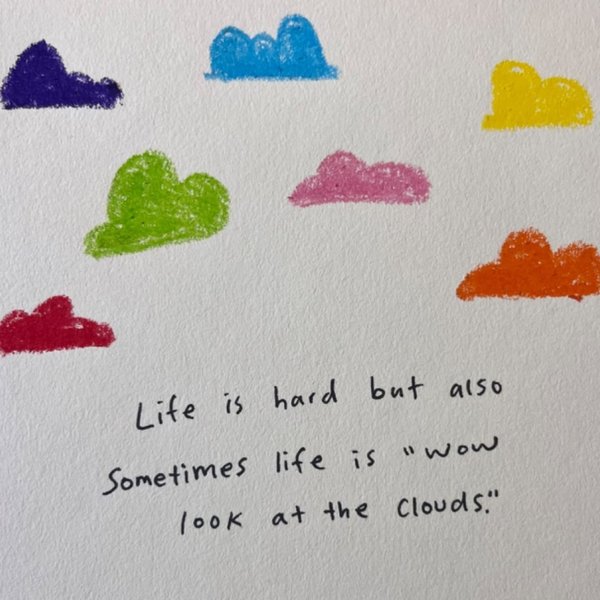 Life is hard but also
Sometimes life is "wow
look at the clouds."